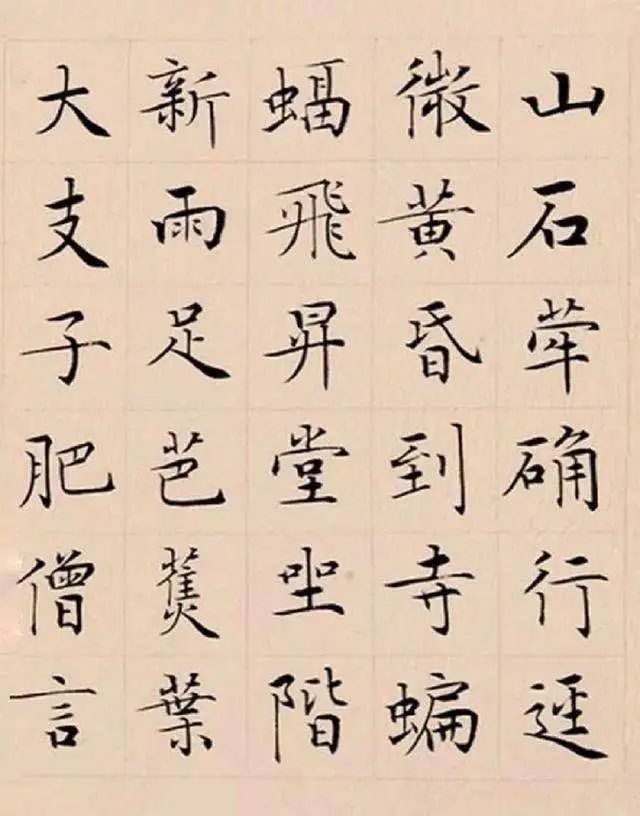 山石荦确行逕
微黄昏到寺蝙
蝠飛昇堂坐階
新雨足芭蕉葉
大支子肥僧言